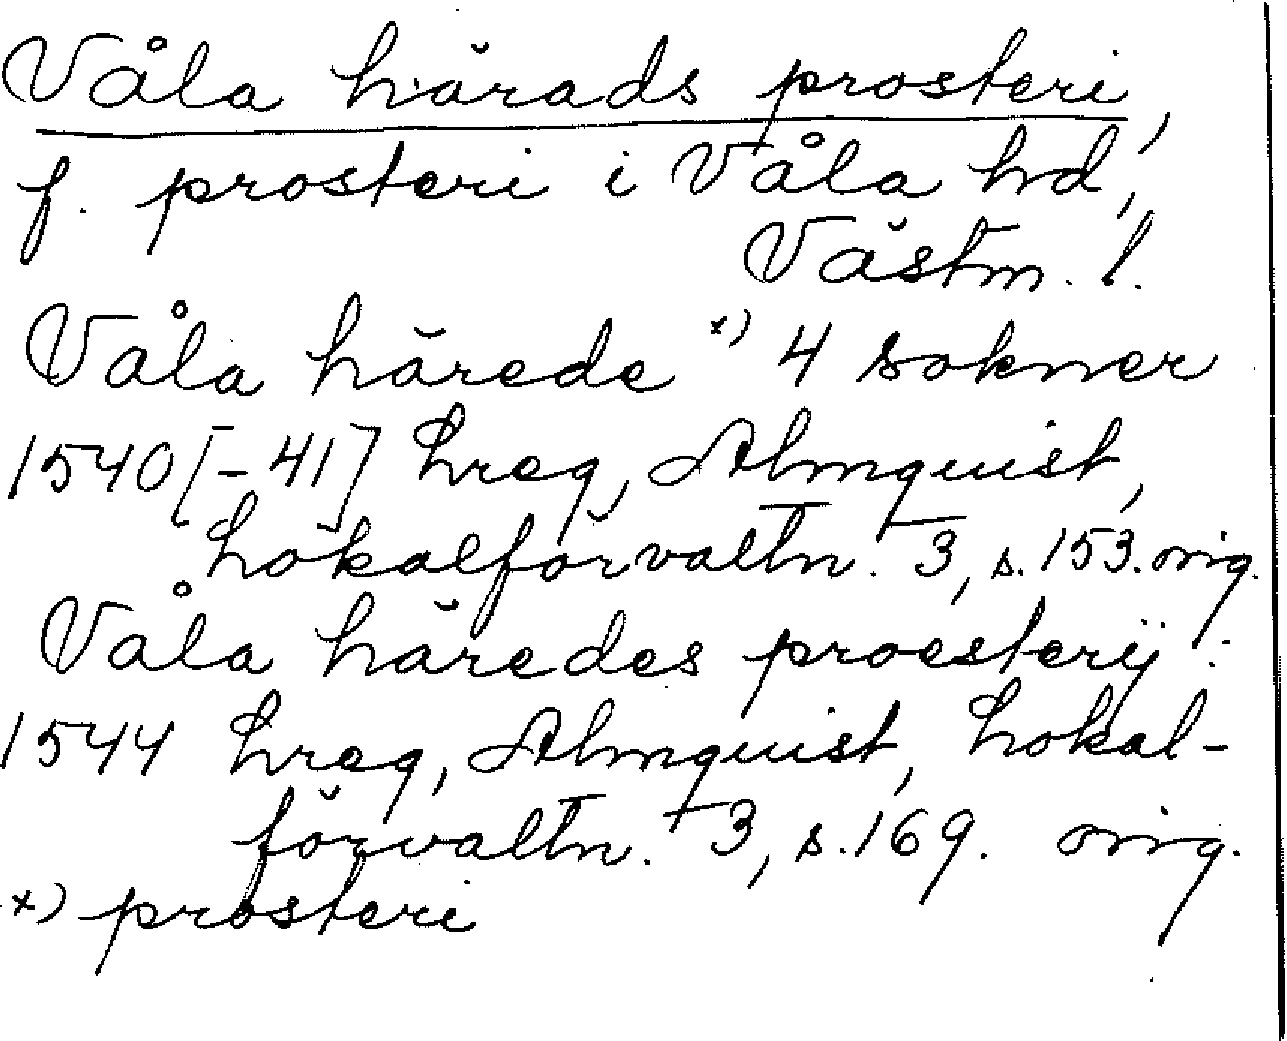 Våla härads prosteri,
f. prosteri i Våla hd,
Västm. l.
Våla härede *) 4 sokner
1540[-41] Lreg, Almquist,
Lokalförvaltn. 3, s. 153. orig.
Våla häredes proesterij:
1544 Lreg, Almquist, Lokal-
förvaltn. 3, s. 169. orig.
*) prosteri